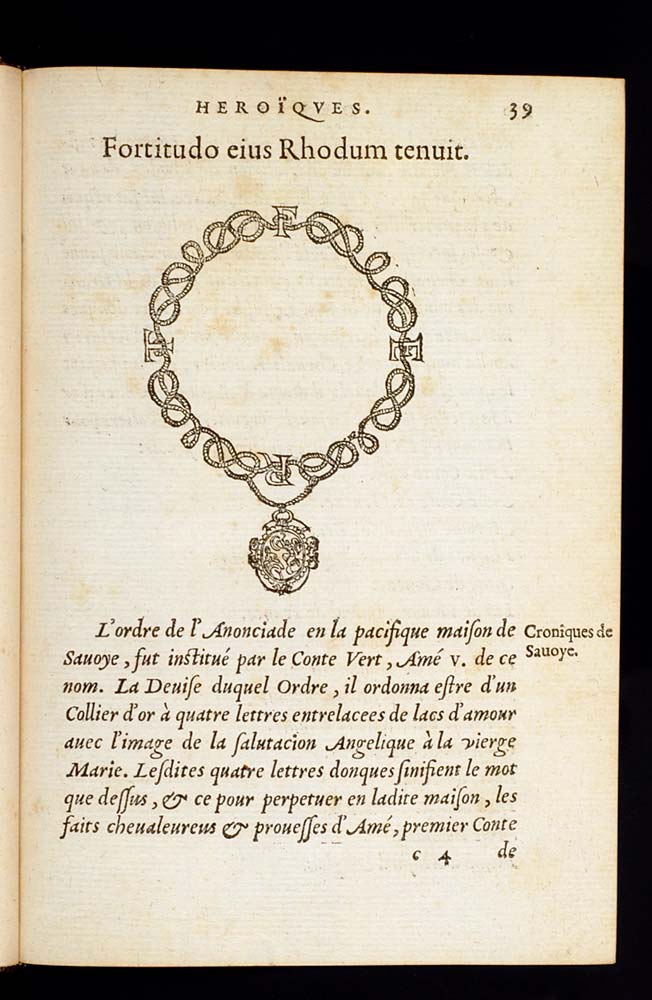 HEROÏQVES. 39
Fortitudo eius Rhodum tenuit.
L'ordre de l'Anonciade en la pacifique maiſon de
Sauoye, fut institué par le Conte Vert, Amé v. de ce
nom. La Deuiſe duquel Ordre, il ordonna eſtre d'un
Collier d'or à quatre lettres entrelacees de lacs d'amour
auec l'image de la ſalutacion Angelique à la vierge
Marie. Leſdites quatre lettres donques ſinifient le mot
que deſſus, & ce pour perpetuer en ladite maiſon, les
faits cheualeureus & proueſſes d'Amé, premier Conte
c 4 de
Croniques de
Sauoye.